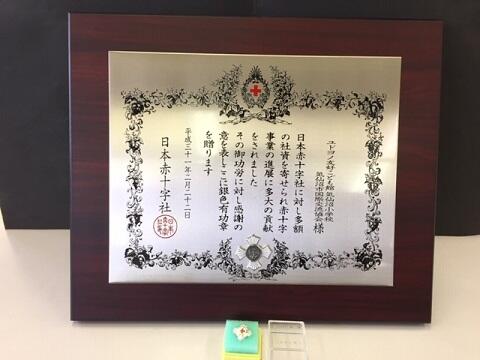 ユドヨノ友好こども館 気仙沼小学校
気仙沼市国際交流協会 様
日本赤十字社に対し多額
の社資を寄せられ赤十字
事業の進展に多大の貢献
をされました
その御功労に対し感謝の
意を表しここに銀色有功章
を贈ります
平成三十一年二月二十二日
日本赤十字社